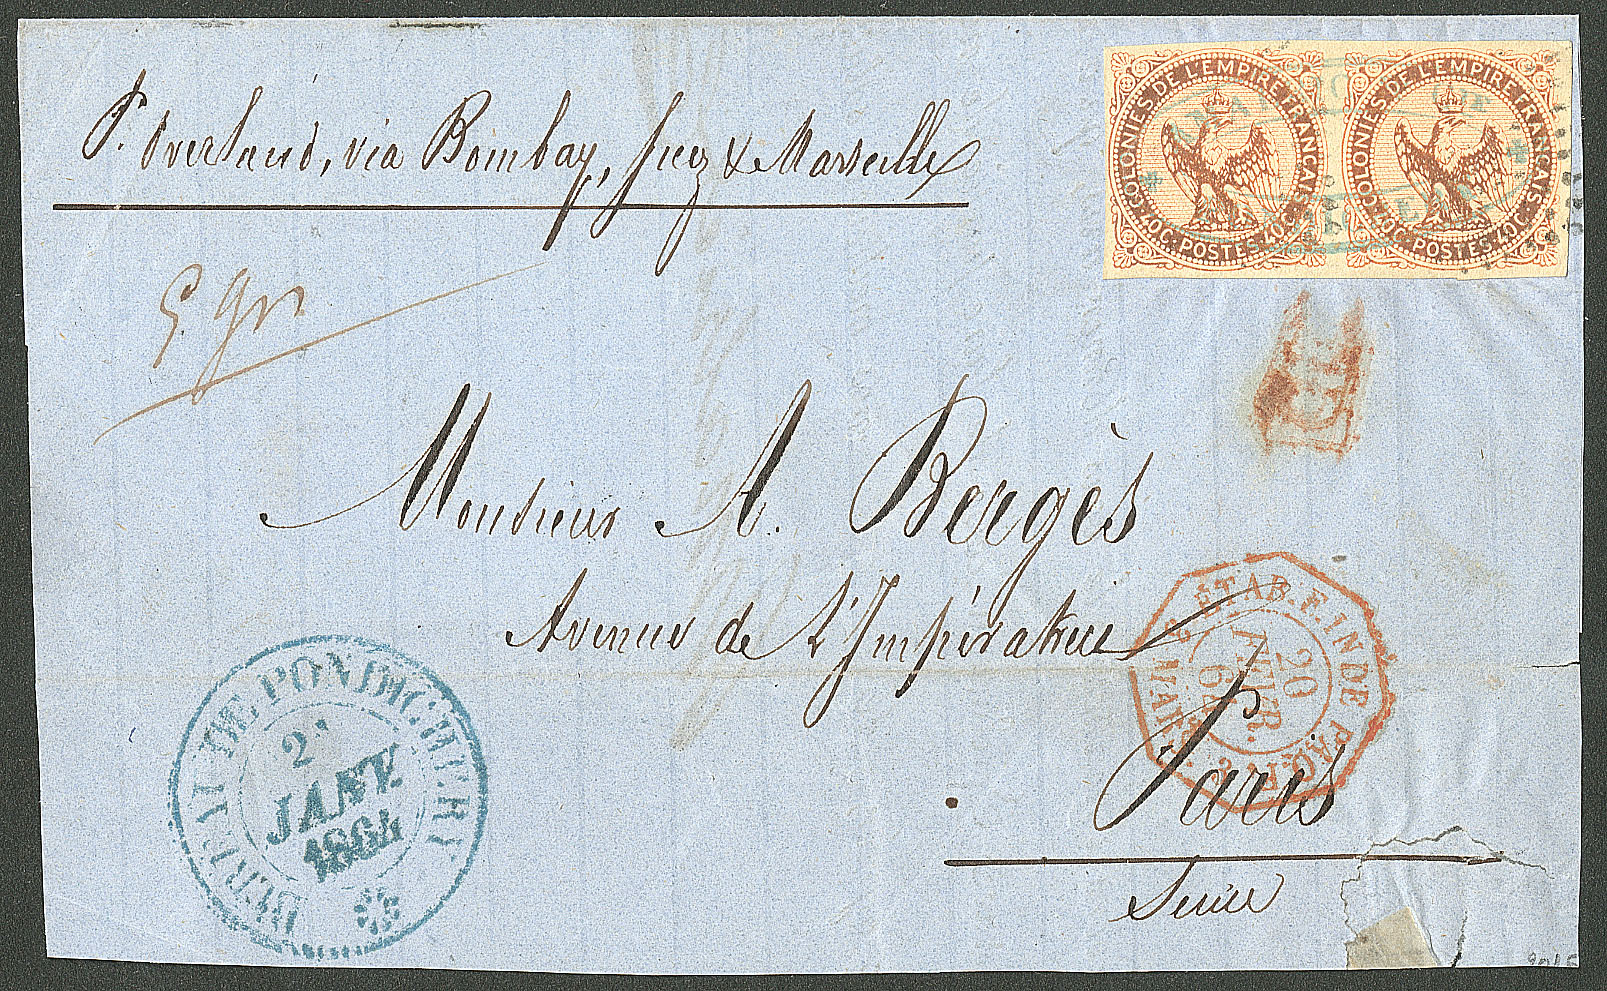 P. Overland, via Bombay, Suez & Marseille
COLONIES DE L'EMPIRE FRANÇAIS
40C. POSTES. 40C.
COLONIES DE L'EMPIRE FRANÇAIS
40C. POSTES. 40C.
5 gr
Monsieur A. Bergès
Avenue de L'Impératrice
Paris
Seine
BUREAU DE PONDICHERY
2
JANV.
1864
ÉTAB. F. INDE PAQ. FR.
20
JANVIER.
64